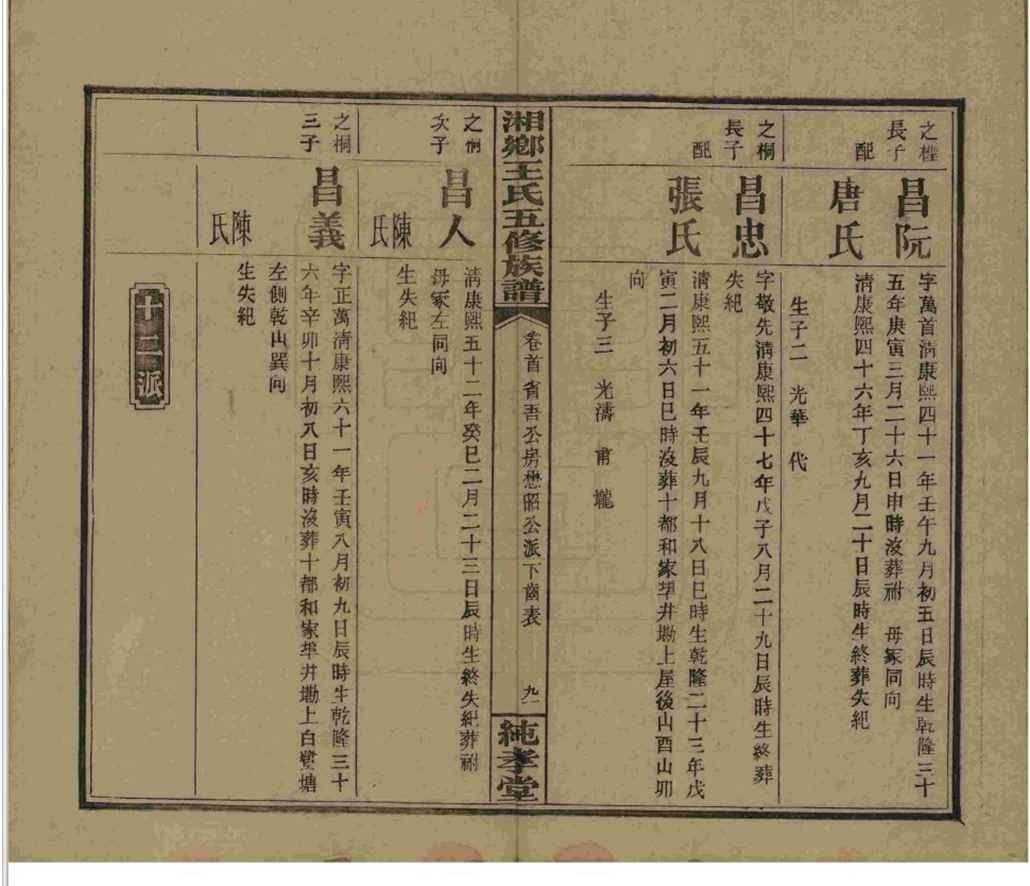 之檉
長子
配
昌阮
唐氏
字萬首清康熙四十一年壬午九月初五日辰時生乾隆三十
五年庚寅三月二十六日申時沒葬祔 母冢同向
清康熙四十六年丁亥九月二十日辰時生終葬失紀
生子二 光華 代
之桐
長子
配
昌忠
張氏
字敬先清康熙四十七年戊子八月二十九日辰時生終葬
失紀
清康熙五十一年壬辰九月十八日巳時生乾隆二十三年戊
寅二月初六日巳時沒葬十都和家垏井塘上屋後山酉山卯
向
生子三 光濤 甫 壠
湘鄉王氏五修族譜
卷首 省吾公房懋昭公派下齒表
九一
純孝堂
之桐
次子
昌人
陳氏
清康熙五十二年癸巳二月二十三日辰時生終失紀葬祔
母冢左同向
生失紀
之桐
三子
昌義
陳氏
字正萬清康熙六十一年壬寅八月初九日辰時生乾隆三十
六年辛卯十月初八日亥時沒葬十都和家垏井塘上白鷺塘
左側乾山巽向
生失紀
廿二派